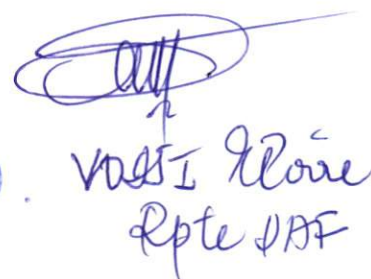 VOSSI Eloïse
Rpte DAF